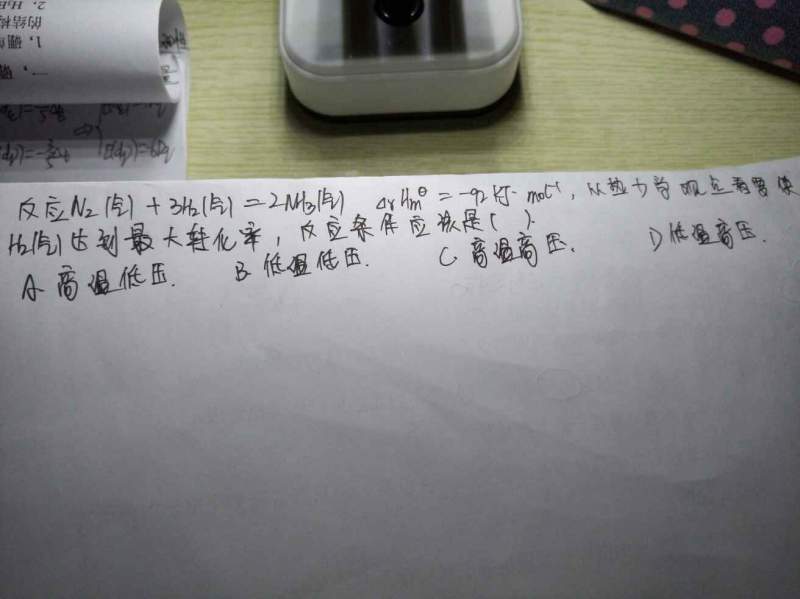 反应N₂(气)+3H₂(气)=2NH₃(气) ΔrHm^θ=-92kJ·mol⁻¹,从热力学观点看要使
H₂(气)达到最大转化率,反应条件应该是( ).
A 高温低压. B 低温低压. C 高温高压. D 低温高压.